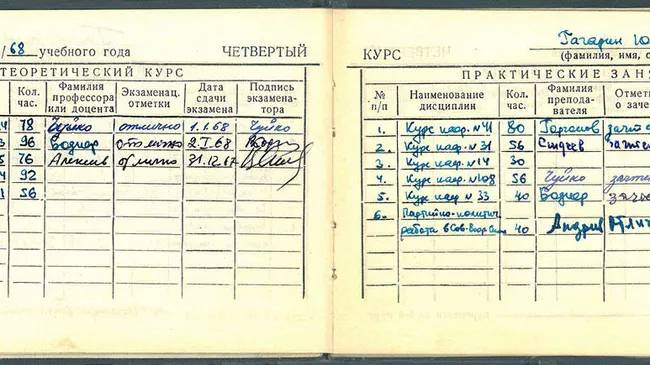 /68 учебного года ЧЕТВЕРТЫЙ
ТЕОРЕТИЧЕСКИЙ КУРС
Кол. час. Фамилия профессора или доцента Экзаменац. отметки Дата сдачи экзамена Подпись экзаменатора
4 78 Чуйко отлично 1.1.68 Чуйко
3 96 Боднар отлично 2.I.68
5 76 Алексеев отлично 31.12.67
4 92
1 56
КУРС Гагарин Ю
(фамилия, имя, о
ПРАКТИЧЕСКИЕ ЗАН
№ п/п Наименование дисциплин Кол. час. Фамилия преподавателя Отмет о заче
1. Курс каф. №41 80 зачте
2. Курс каф. №31 56 зачте
3. Курс каф. №14 30
4. Курс каф. №108 56 Чуйко зачте
5. Курс каф. №33 40 Боднар заче
6. Партийно-политич.
работа в Сов. Воор. Силах 40 Отлич